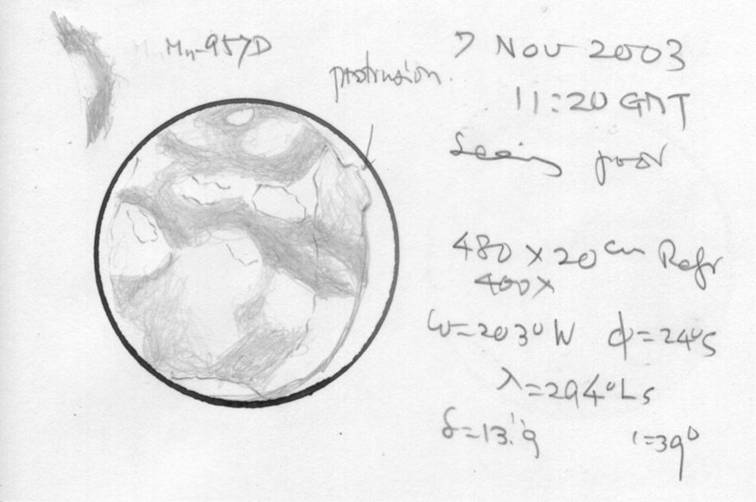 Mn-957D
protrusion.
7 Nov 2003
11:20 GMT
Seeing poor
480 × 20cm Refr
400×
ω=203°W φ=24°S
λ=294°Ls
δ=13".9 ι=39°